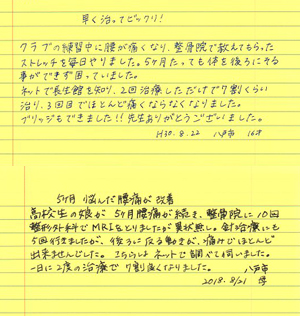 早く治ってビックリ!
クラブの練習中に腰が痛くなり、整骨院で教えてもらった
ストレッチを毎日やりました。5ヶ月たっても体を後ろにそる
事ができず困っていました。
ネットで長生館を知り、2回治療しただけで7割くらい
治り、3回目でほとんど痛くならなくなりました。
ブリッジもできました!!先生ありがとうございました。
H30.8.22 八戸市 16才
5ヶ月 悩んだ腰痛が改善
高校生の娘が 5ヶ月腰痛が続き、整骨院に10回
整形外科でMRIをとりましたが異状無し。針治療にも
5回行きましたが、後ろに反る動きが、痛みでほとんど
出来ませんでした。こちらはネットで調べて伺いました。
一日に2度の治療で7割痛くなりました。 八戸市
2018.8/21 母